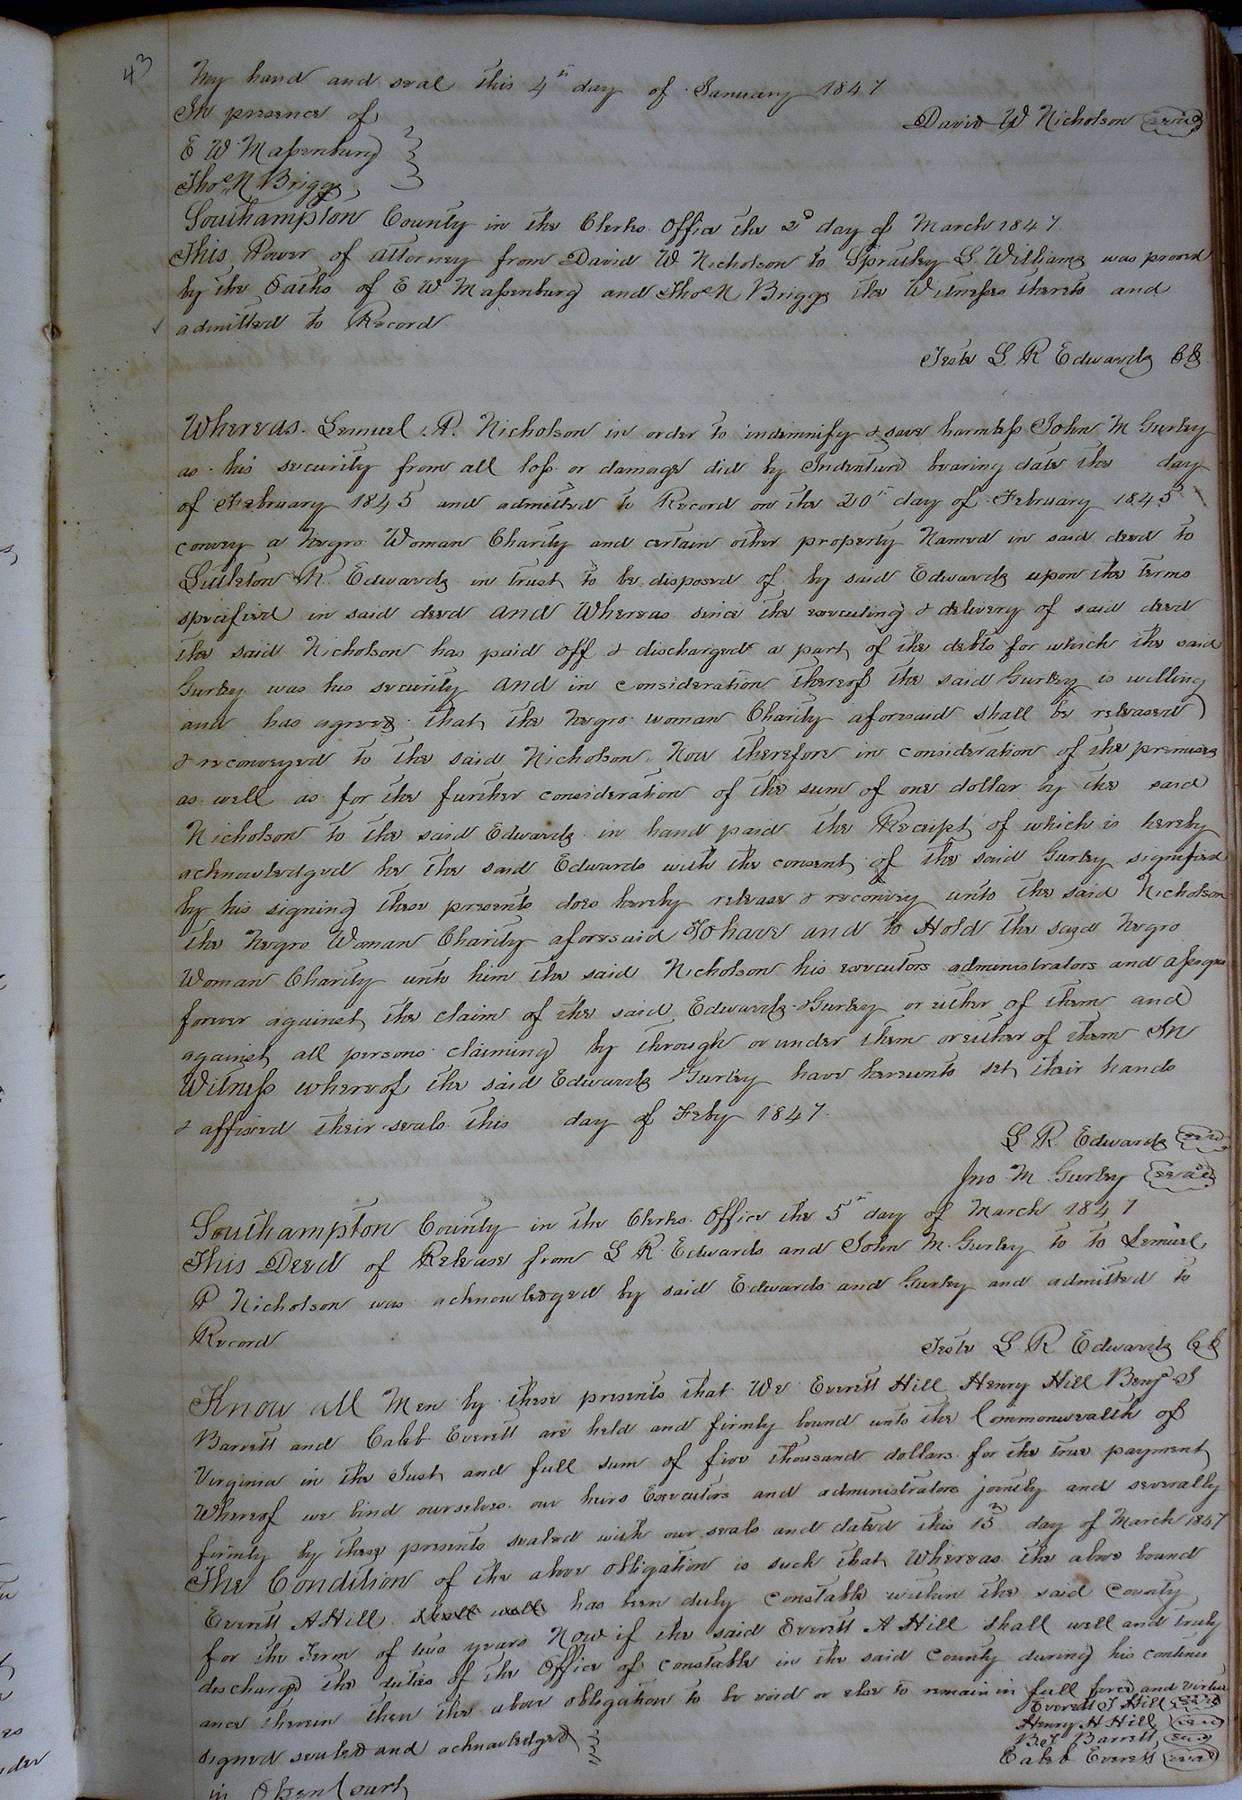 43
My hand and seal this 4th day of January 1847
In presence of
David W Nicholson seal
E W Massenburg
Thos N Briggs
Southampton County in the Clerks Office the 2d day of March 1847
This Power of attorney from David W Nicholson to Spratley L Williams was proved
by the Oaths of E W Massenburg and Thos N Briggs the Witnesses thereto and
admitted to Record
Teste L R Edwards Clk
Whereas Lemuel P. Nicholson in order to indemnify & save harmless John M Gurley
as his security from all loss or damage did by Indenture bearing date the day
of February 1845 and admitted to Record on the 20th day of February 1845
convey a Negro Woman Charity and certain other property Named in said deed to
Littleton R. Edwards in trust to be disposed of by said Edwards upon the terms
specified in said deed and Whereas since the executing & delivery of said deed
the said Nicholson has paid off & discharged a part of the debts for which the said
Gurley was his security and in consideration thereof the said Gurley is willing
and has agreed that the Negro woman Charity aforesaid shall be released
& reconveyed to the said Nicholson Now therefore in consideration of the premises
as well as for the further consideration of the sum of one dollar by the said
Nicholson to the said Edwards in hand paid the Receipt of which is hereby
acknowledged he the said Edwards with the consent of the said Gurley signified
by his signing these presents does hereby release & reconvey unto the said Nicholson
the Negro Woman Charity aforesaid To have and to Hold the said Negro
Woman Charity unto him the said Nicholson his executors administrators and assigns
forever against the claim of the said Edwards & Gurley or either of them and
against all persons claiming by through or under them or either of them In
Witness whereof the said Edwards & Gurley have hereunto set their hands
& affixed their seals this day of Feby 1847.
L. R. Edwards seal
Jno M Gurley seal
Southampton County in the Clerks Office the 5th day of March 1847
This Deed of Release from L R Edwards and John M. Gurley to to Lemuel
P Nicholson was acknowledged by said Edwards and Gurley and admitted to
Record
Teste L. R Edwards Clk
Know all Men by these presents that We Everett Hill Henry Hill Benj J
Barrett and Caleb Everett are held and firmly bound unto the Commonwealth of
Virginia in the Just and full sum of five thousand dollars for the true payment
Whereof we bind ourselves our heirs Executors and administrators jointly and severally
firmly by these presents sealed with our seals and dated this 15th day of March 1847
The Condition of the above obligation is such that Whereas the above bound
Everett A Hill shall well has been duly constable within the said County
for the Term of two years Now if the said Everett A Hill shall well and truly
discharge the duties of the Office of constable in the said County during his continu
ance therein then the above obligation to be void or else to remain in full force and virtue
Everett J Hill seal
Henry H Hill seal
signed sealed and acknowledged
B J Barrett seal
Caleb Everett seal
in Open Court